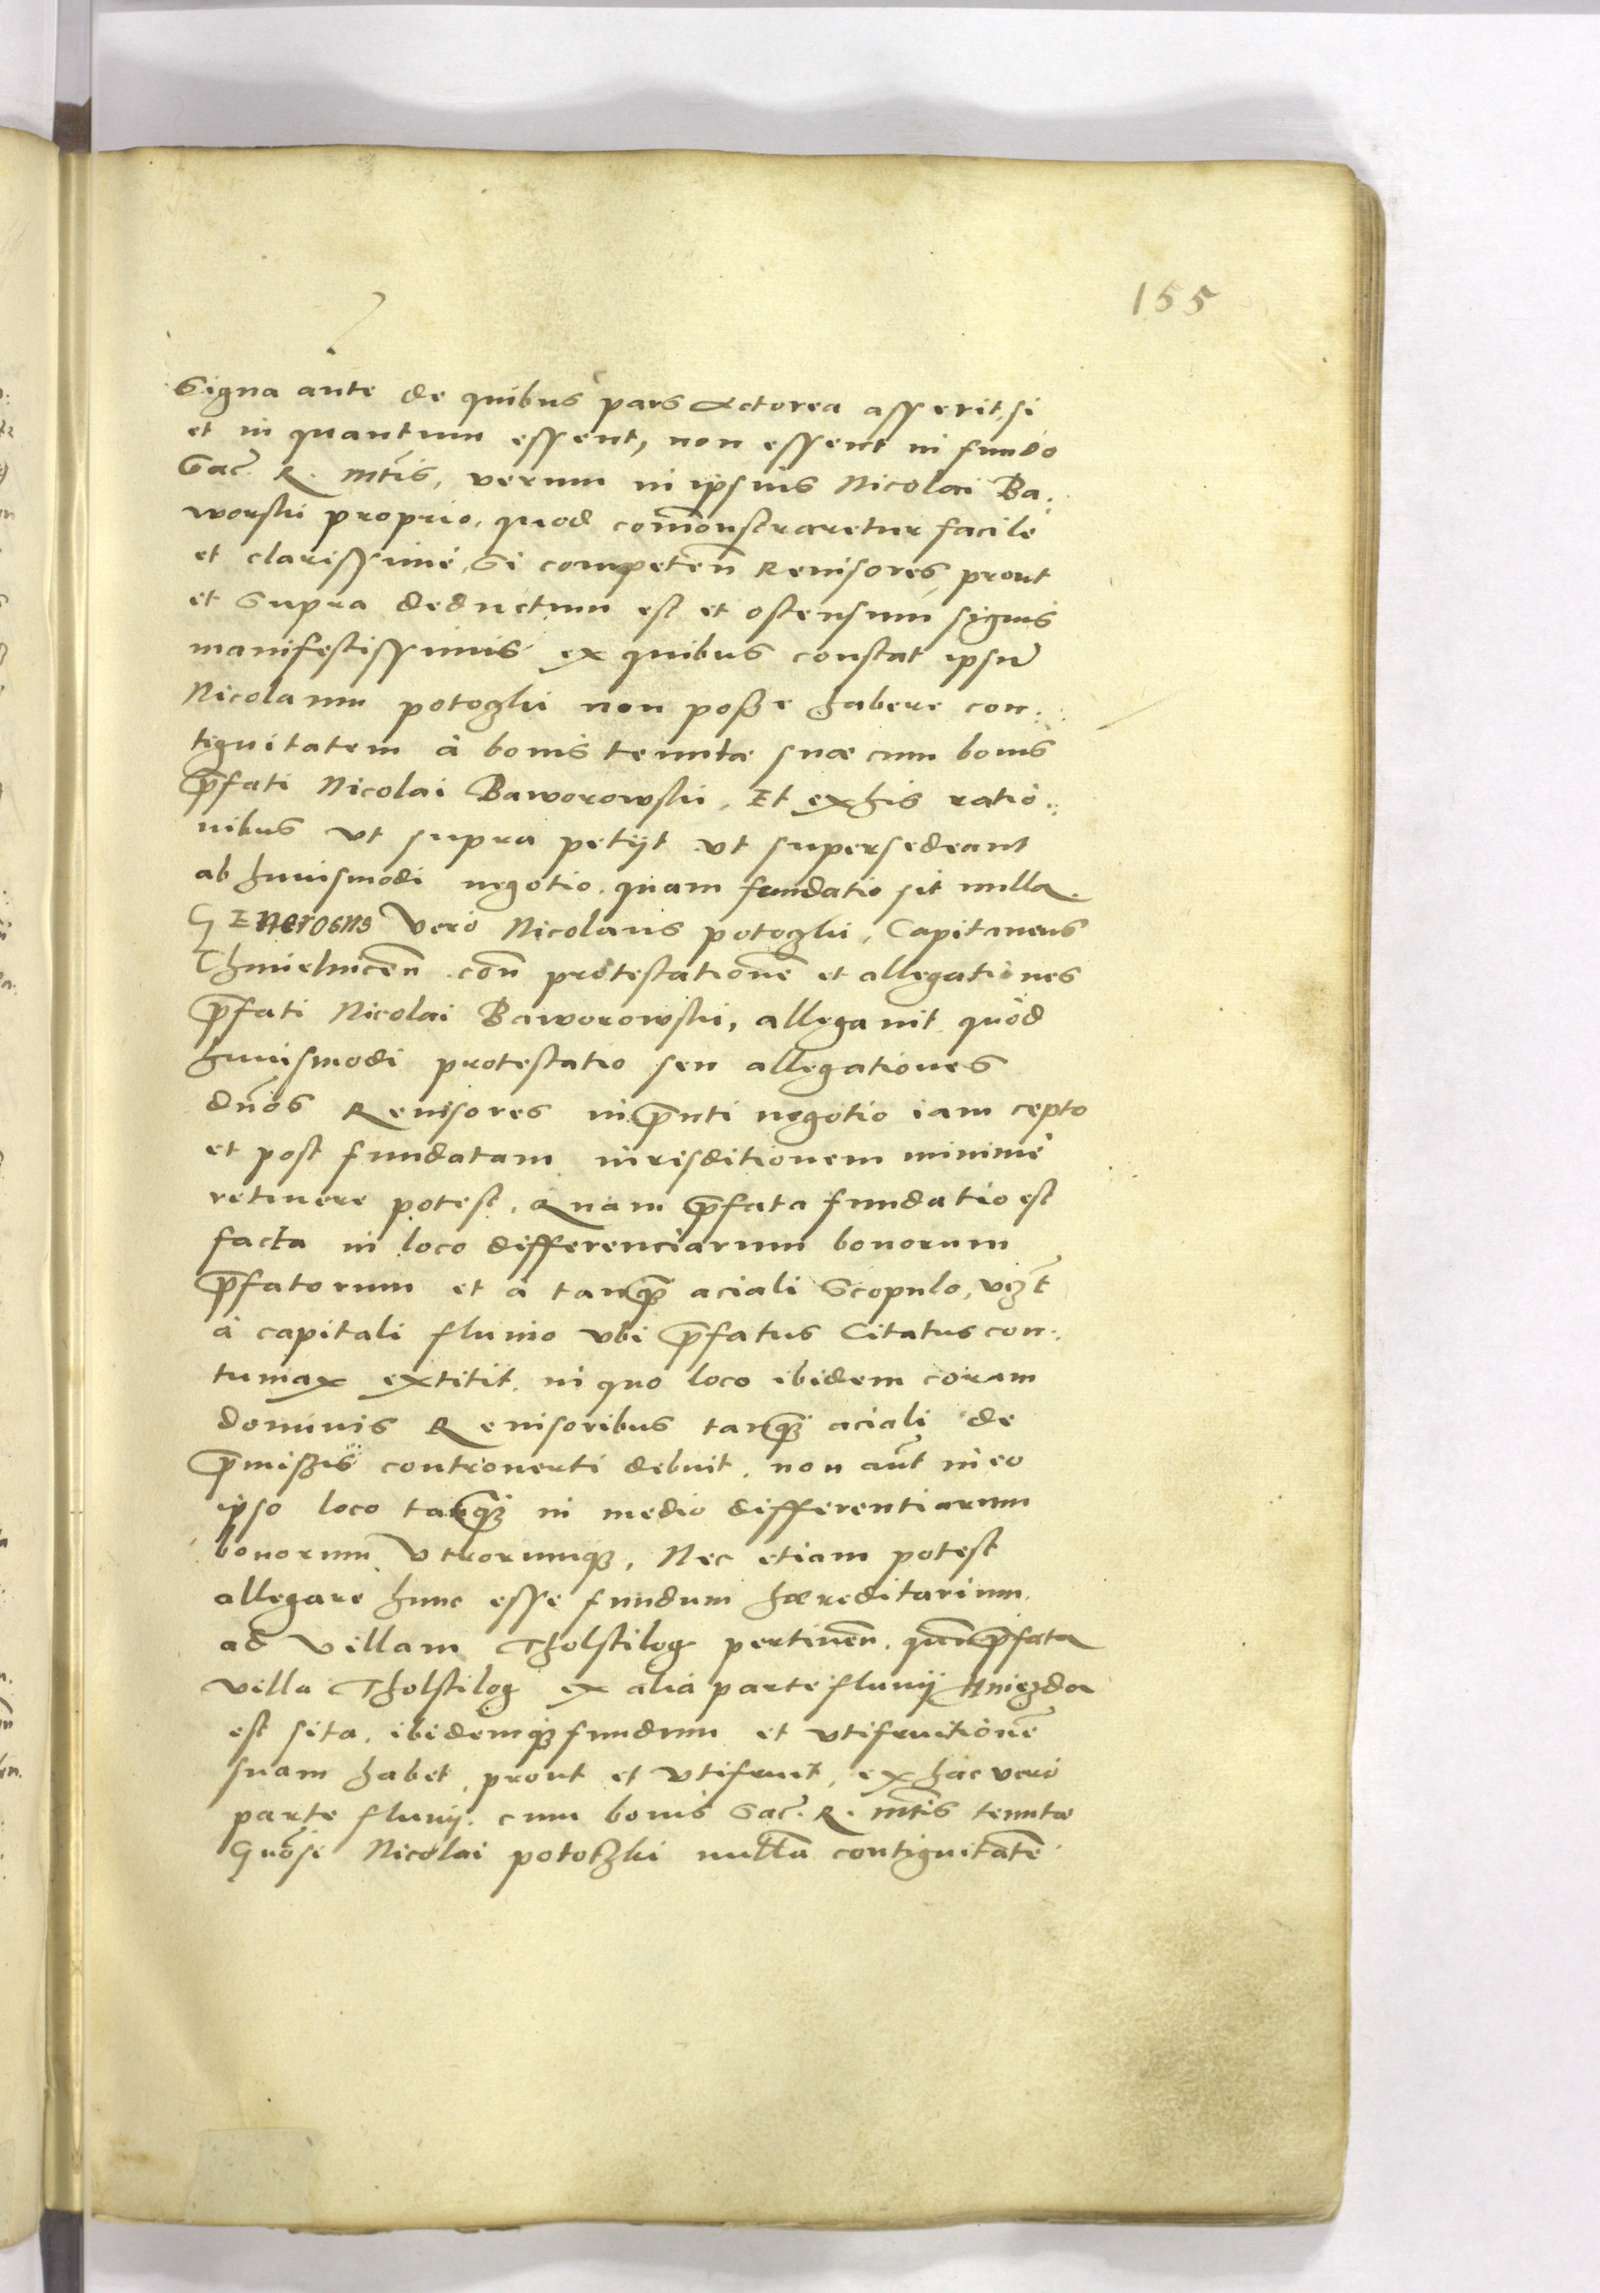 155
Signa ante de quibus pars Actorea asserit, si
et in quantum essent, non essent in fundo
Sac. R. Mtis, verum in ipsius Nicolai Ba:
worski proprio, quod comonstraretur facile
et clarissime, Si competen Revisores, prout
et supra deductum est et ostensum signis
manifestissimis ex quibus constat ipsum
Nicolaum potoczki non posse habere con:
tiguitatem à bonis tenutæ suæ cum bonis
pfati Nicolai Baworowski. Et ex his ratio:
nibus vt supra petijt vt supersedeant
ab huiusmodi negotio, quam fundatio sit nulla.
GEnerosus Vero Nicolaus potoczki, Capitaneus
Chmielnicen con protestatione et allegationes
pfati Nicolai Baworowski, allegauit quod
huiusmodi protestatio seu allegationes
dnos Reuisores in pnti negotio iam cepto
et post fundatam iurisditionem minime
retinere potest. Quam pfata fundatio est
facta in loco differenciarum bonorum
pfatorum et à tanq aciali Scopulo, vizt
à capitali fluuio vbi pfatus Citatus con:
tumax extitit. in quo loco ibidem coram
dominis Reuisoribus tanq aciali de
pmissis controuerti debuit. non aut in eo
ipso loco tanq in medio differentiarum
bonorum Vtrorumq. Nec etiam potest
allegare hunc esse fundum hæreditarium
ad Villam Tholstilog pertinen. qum pfata
villa Tholstilog ex alia parte fluuij Hniezda
est sita, ibidemq fundum et vtifruitione
suam habet, prout et vtifruit, ex hac vero
parte fluuij. cum bonis Sac. R. Mtis tenutæ
Gnosi Nicolai pototzki nulla contiguitate